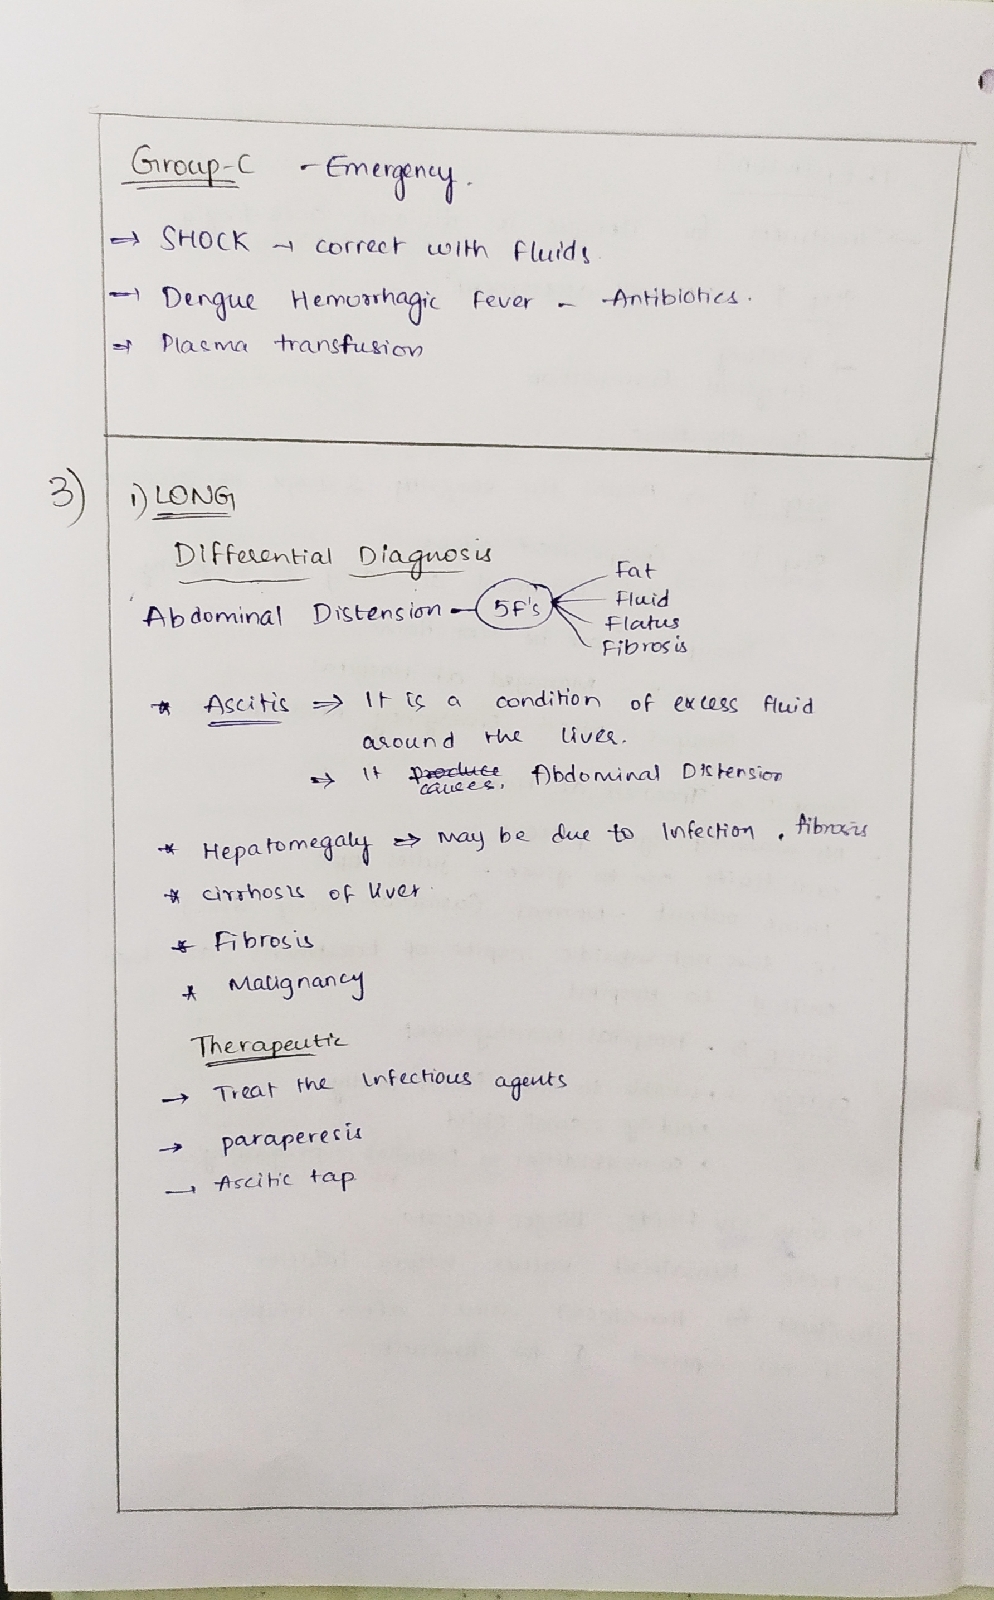 Group-C - Emergency.
→ SHOCK → correct with fluids.
→ Dengue Hemorrhagic Fever - Antibiotics.
→ Plasma transfusion
3) i) LONG
Differential Diagnosis
Abdominal Distension - 5F's
Fat
Fluid
Flatus
Fibrosis
* Ascitis ⇒ It is a condition of excess fluid
around the liver.
⇒ It produce causes, Abdominal Distension
* Hepatomegaly ⇒ May be due to Infection, fibrosis
* cirrhosis of liver.
* Fibrosis
* Malignancy
Therapeutic
→ Treat the Infectious agents
→ paraperesis
→ Ascitic tap